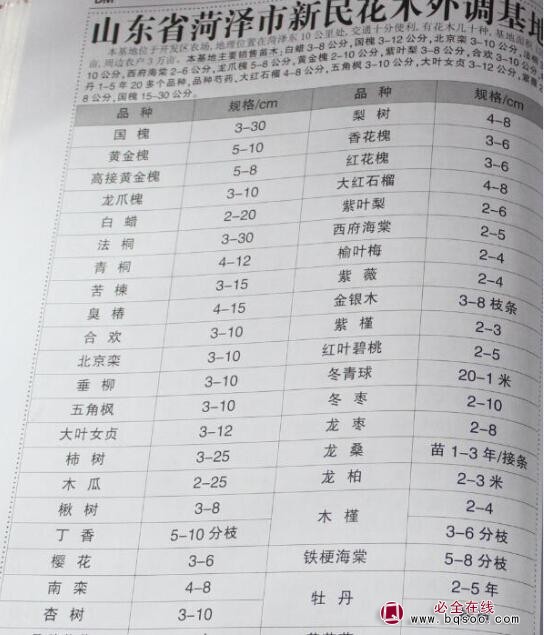 DM
山东省菏泽市新民花木外调基地
本基地位于开发区农场,地理位置在菏泽东10公里处,交通十分便利,有花木几十种,基地面积
亩,周边农户3万亩。本基地主要销售苗木:白蜡3-8公分,国槐3-12公分,北京栾3-10公分,法桐
10公分,西府海棠2-6公分,龙爪槐5-8公分,黄金槐2-10公分,紫叶梨3-8公分,合欢3-10公分,
丹1-5年20多个品种,品种芍药,大红石榴4-8公分,五角枫3-10公分,大叶女贞3-12公分,紫薇
8公分,国槐15-30公分。
品种 规格/cm 品种 规格/cm
国槐 3-30 梨树 4-8
黄金槐 5-10 香花槐 3-6
高接黄金槐 5-8 红花槐 3-6
龙爪槐 3-10 大红石榴 4-8
白蜡 2-20 紫叶梨 2-6
法桐 3-30 西府海棠 2-5
青桐 4-12 榆叶梅 2-4
苦楝 3-15 紫薇 2-4
臭椿 4-15 金银木 3-8枝条
合欢 3-10 紫槿 2-3
北京栾 3-10 红叶碧桃 2-5
垂柳 3-10 冬青球 20-1米
五角枫 3-10 冬枣 2-10
大叶女贞 3-12 龙枣 2-8
柿树 3-25 龙桑 苗1-3年/接条
木瓜 2-25 龙柏 2-3米
楸树 3-8 木槿 2-4
丁香 5-10分枝 3-6分枝
樱花 3-6 铁梗海棠 5-8分枝
南栾 4-8 牡丹 2-5年
杏树 3-10
必全在线
www.bqsoo.com